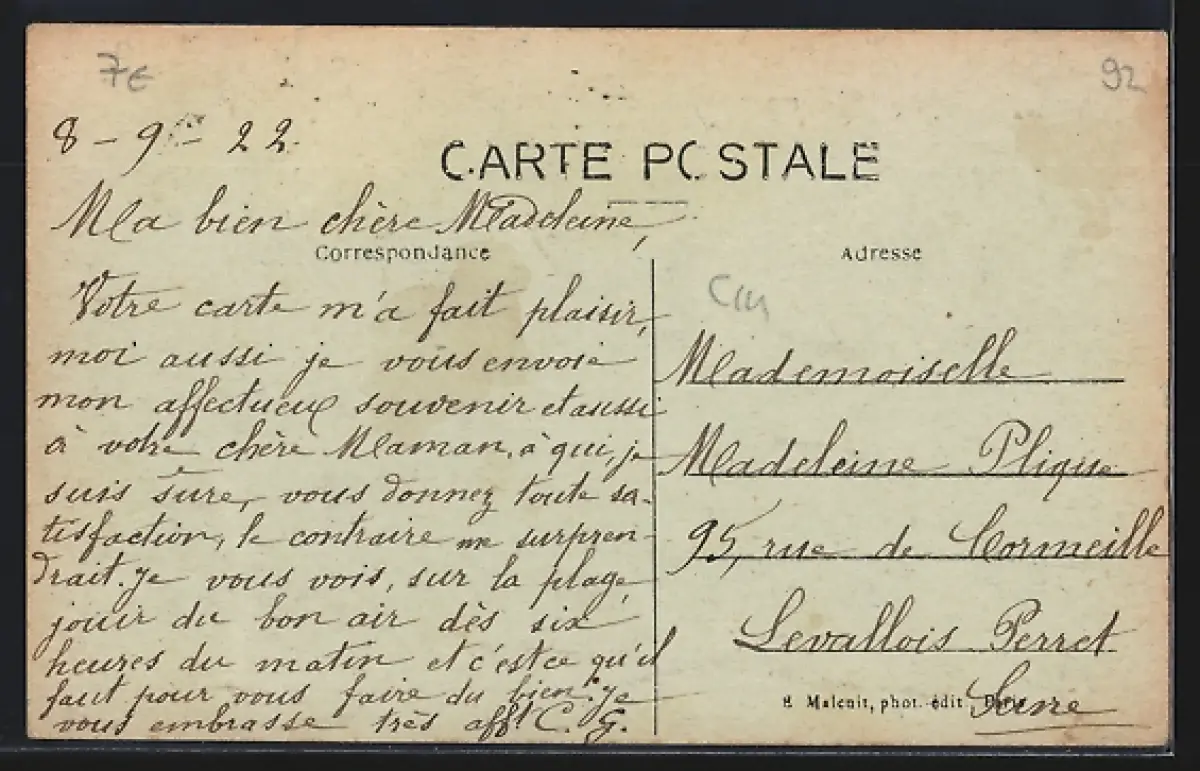 7€
92
8 - 9bre - 22.
CARTE POSTALE
Ma bien chère Madeleine,
Correspondance
Adresse
Votre carte m'a fait plaisir,
moi aussi je vous envoie
mon affectueux souvenir et aussi
à votre chère Maman, à qui, je
suis sûre, vous donnez toute sa-
tisfaction, le contraire me surpren-
drait. Je vous vois, sur la plage,
jouir du bon air dès six
heures du matin et c'est ce qu'il
faut pour vous faire du bien. Je
vous embrasse très afft C. G.
Mademoiselle
Madeleine Plique
95, rue de Cormeille
Levallois Perret
Seine
E Malcuit, phot. édit Paris